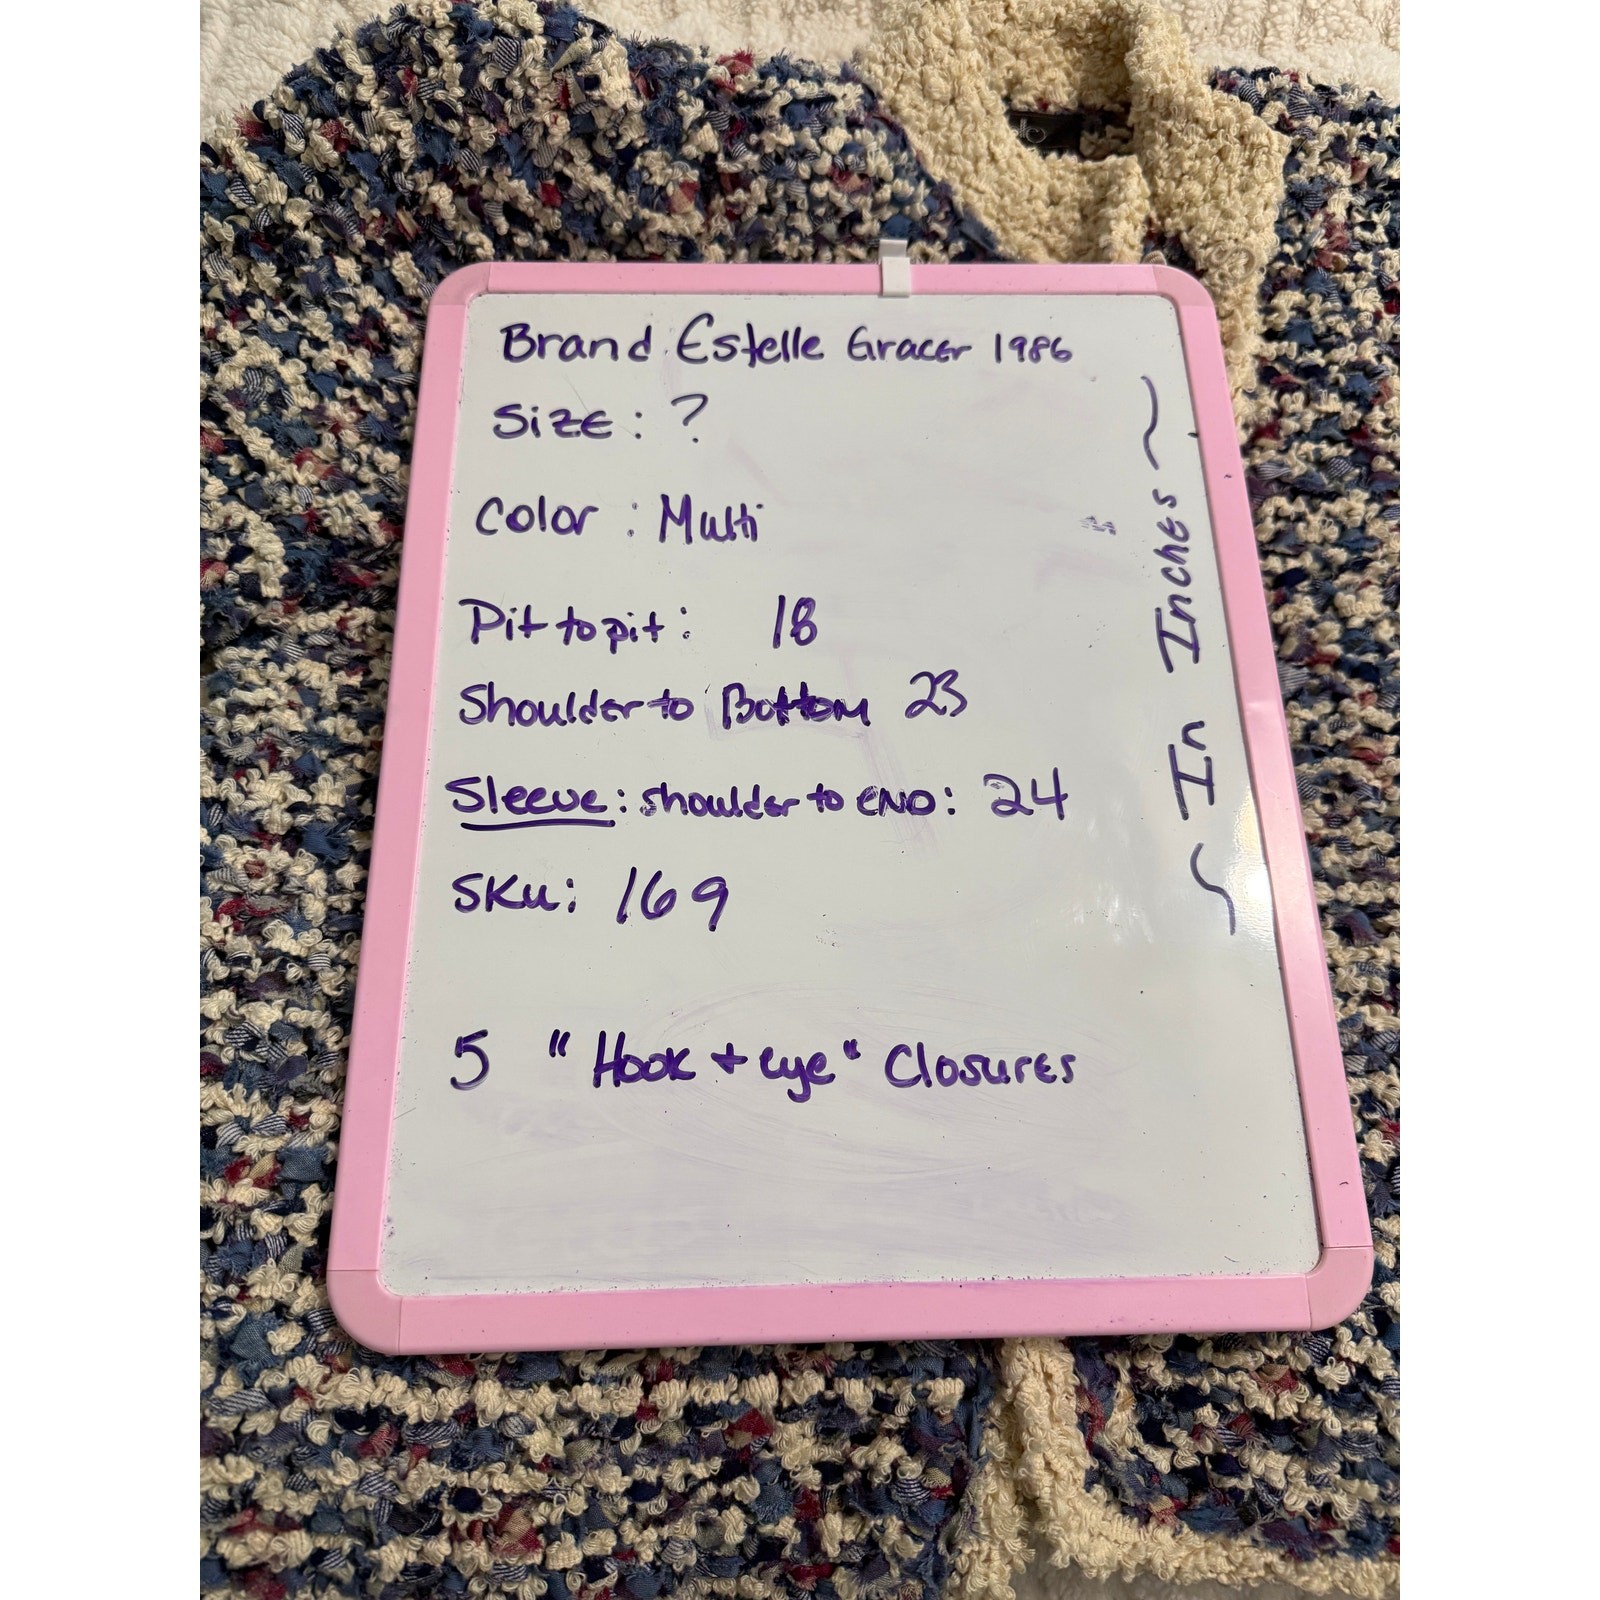 Brand Estelle Gracer 1986
Size: ?
Color: Multi
Pit to pit: 18
Shoulder to Bottom 23
Sleeve: shoulder to END: 24
SKU: 169
5 "Hook + eye" Closures
~ In Inches ~